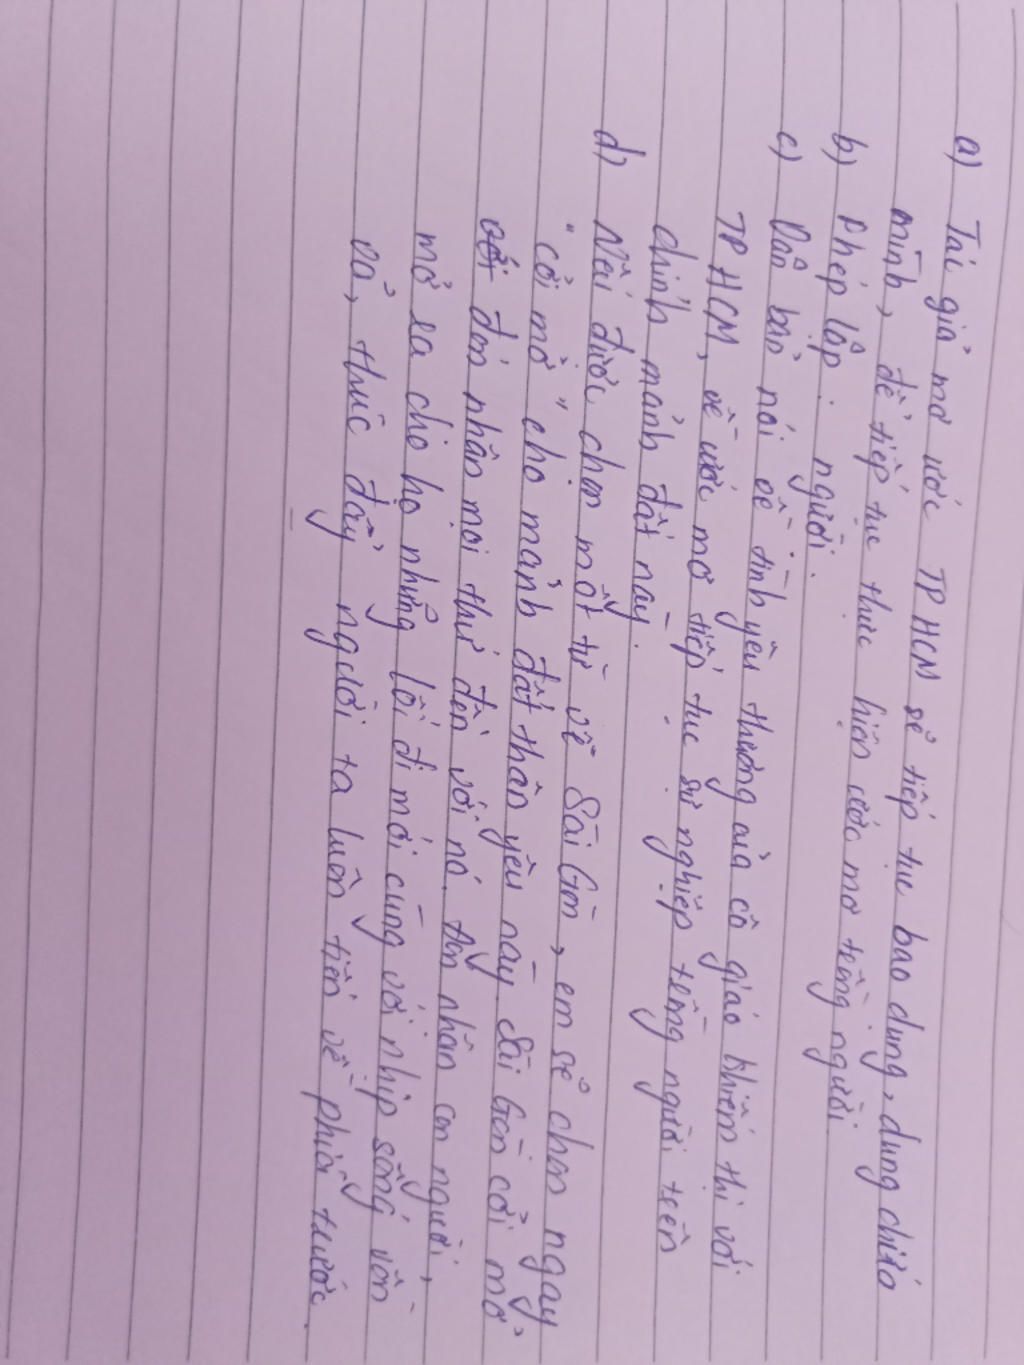 a) Tác giả mơ ước TP HCM sẽ tiếp tục bao dung, dung chứa
mình, để tiếp tục thực hiện ước mơ trồng người.
b) Phép lặp: người.
c) Văn bản nói về tình yêu thương của cô giáo khiếm thị với
TP HCM, về ước mơ tiếp tục sự nghiệp trồng người trên
chính mảnh đất này.
d) Nếu được chọn một từ về Sài Gòn, em sẽ chọn ngay
"cởi mở" cho mảnh đất thân yêu này. Sài Gòn cởi mở
đón nhận mọi thứ đến với nó. đón nhận con người,
mở ra cho họ những lối đi mới cùng với nhịp sống vồn
vả, thúc đẩy người ta luôn tiến về phía trước.